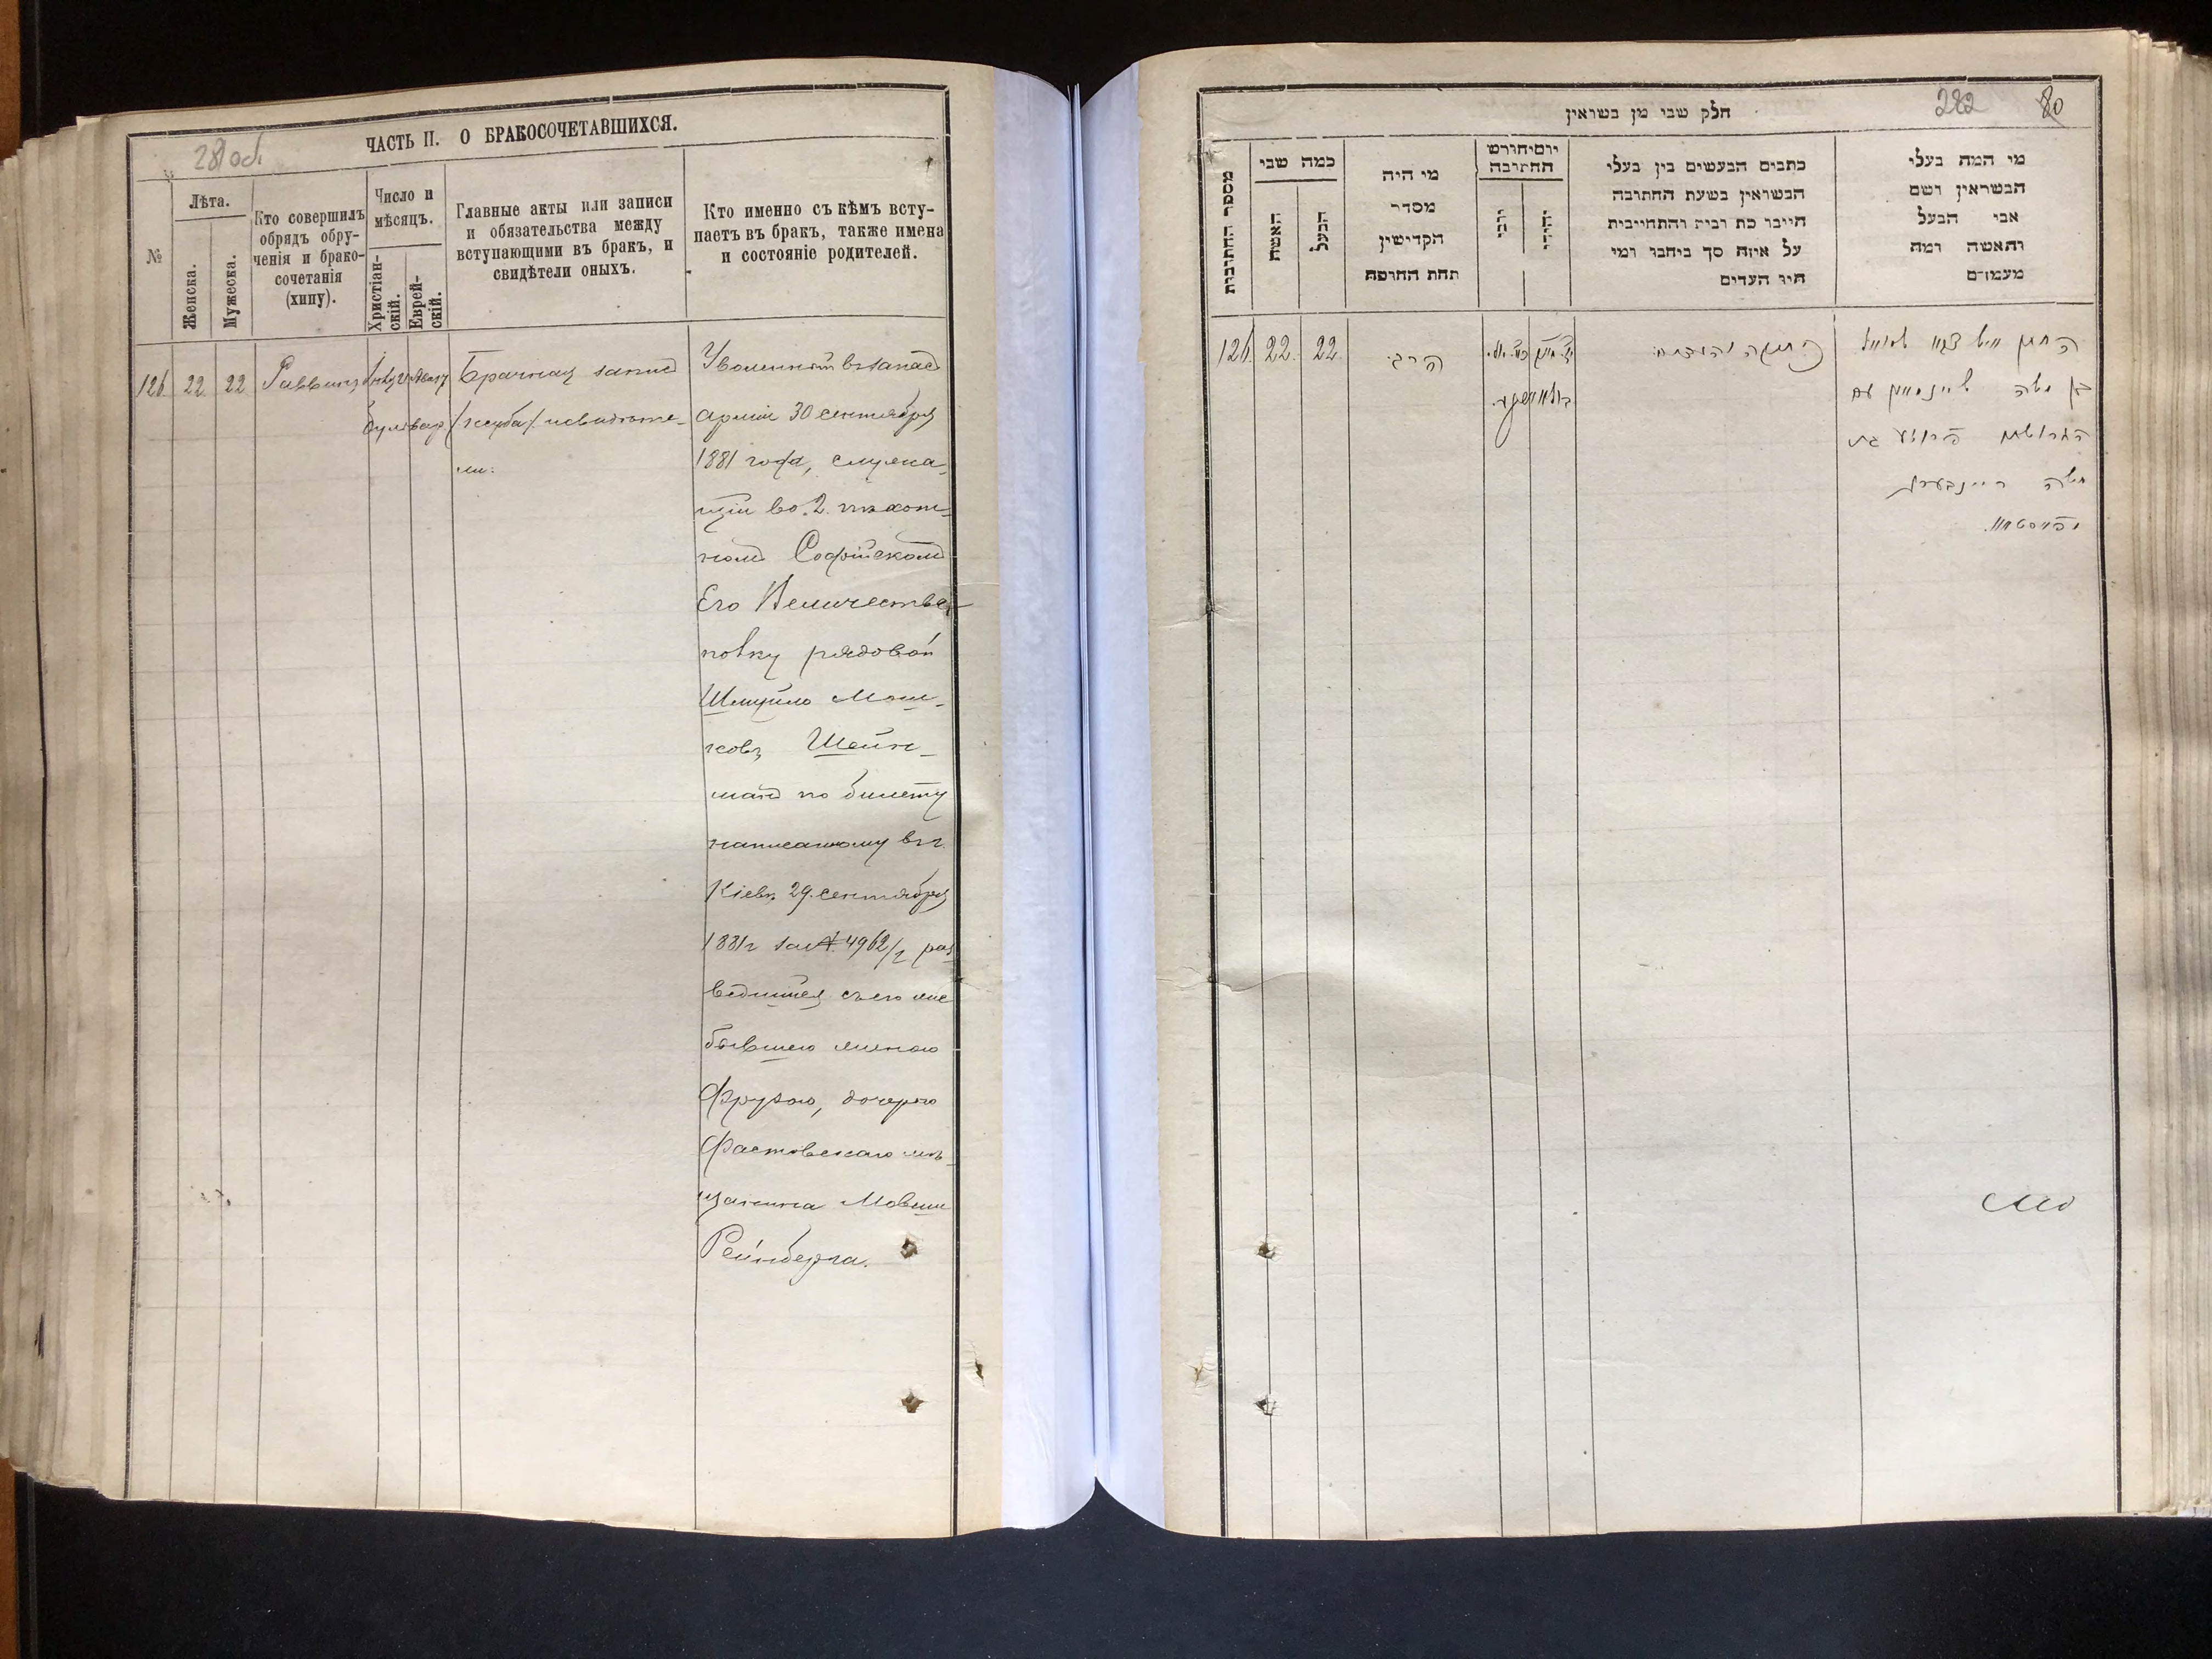 281об.
ЧАСТЬ II. О БРАКОСОЧЕТАВШИХСЯ.
№
Лѣта.
Женска.
Мужеска.
Кто совершилъ
обрядъ обру-
ченія и брако-
сочетанія
(хипу).
Число и
мѣсяцъ.
Христіан-
скій.
Еврей-
скій.
Главные акты или записи
и обязательства между
вступающими въ бракъ, и
свидѣтели оныхъ.
Кто именно съ кѣмъ всту-
паетъ въ бракъ, также имена
и состояніе родителей.
126. 22. 22 Раввинъ
Брачная запись
/ктуба/. и свидѣте-
ли:
Уволенный въ запасъ
арміи 30 сентября
1881 года, служа-
щій во 2. пѣхот-
номъ Софійскомъ
Его Величества
полку рядовой
Шмуйло Мош-
ковъ Шейн-
манъ по билету
написанному въ г.
Кіевѣ 29. сентября
1881 г за № 4962/г раз
ведшійся съ его же
бывшею женою
Фрузою, дочерью
Фастовскаго мѣ-
щанина Мовши
Рейнберга.
282 80
חלק שני מן נשואין
מספר החתונות
כמה שני
האשה
הבעל
מי היה
מסדר
הקדישין
תחת החופה
יום וחודש
החתונה
כתבים הנעשים בין בעלי
הנשואין בשעת החתונה
היינו כת
על איזה סך
ומי
היו העדים
מי המה בעלי
הנשואין ושם
אבי הבעל
והאשה ומה
מעמדם
126. 22. 22.
הרב
החתן
בן משה שיינמאן עם
הגרושה פרוזע בת
משה ריינבערג